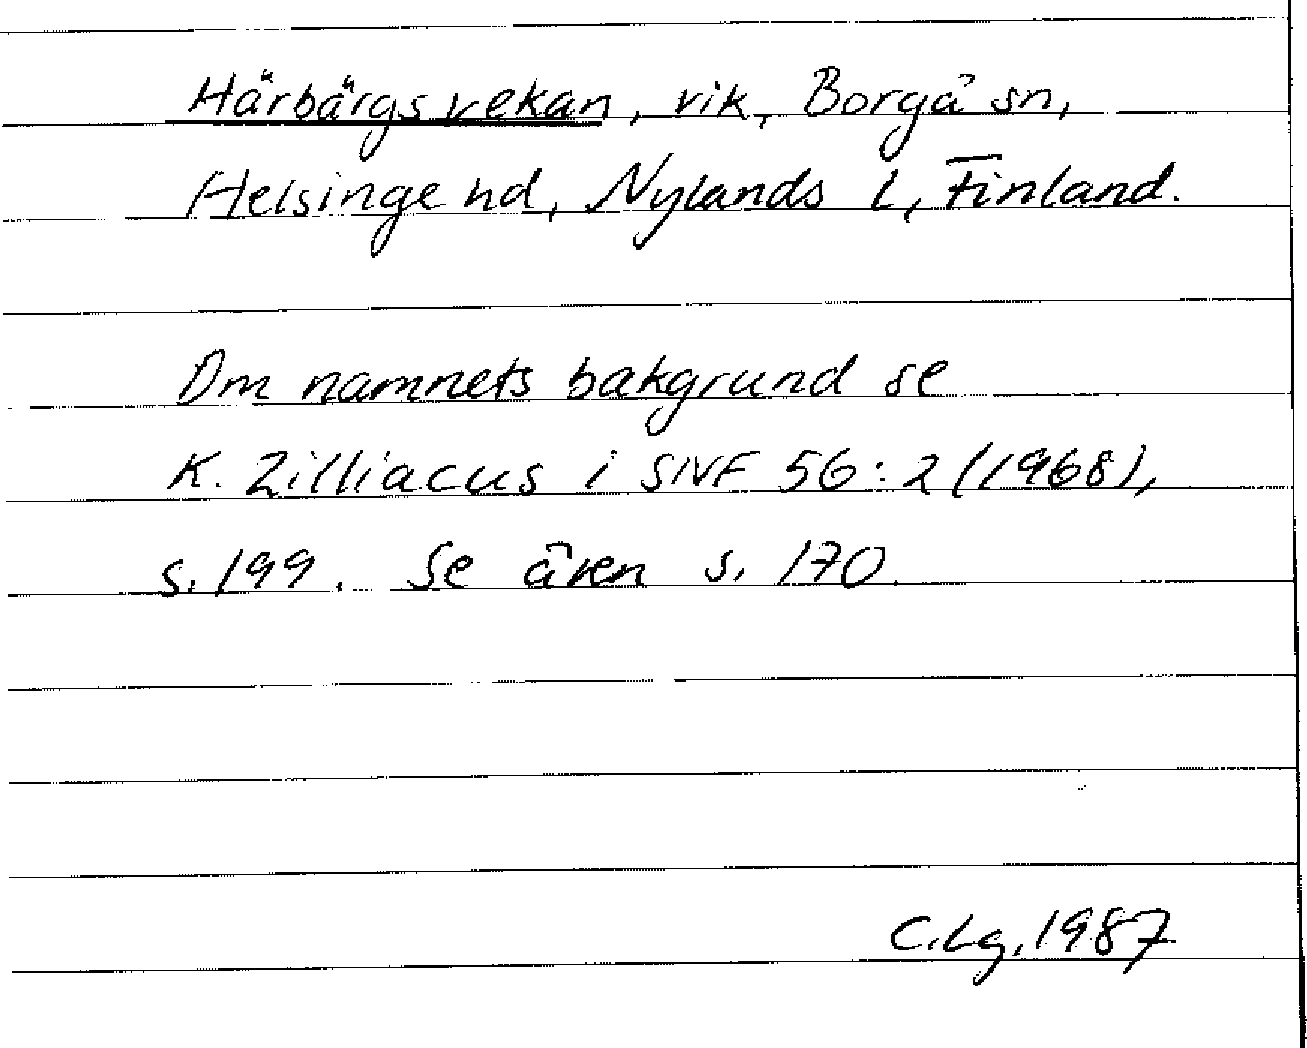 Härbärgsvekan, vik, Borgå sn,
Helsinge hd, Nylands l, Finland.
Om namnets bakgrund se
K. Zilliacus i SNF 56:2 (1968),
s. 199. Se även s. 170.
C.Lg. 1987